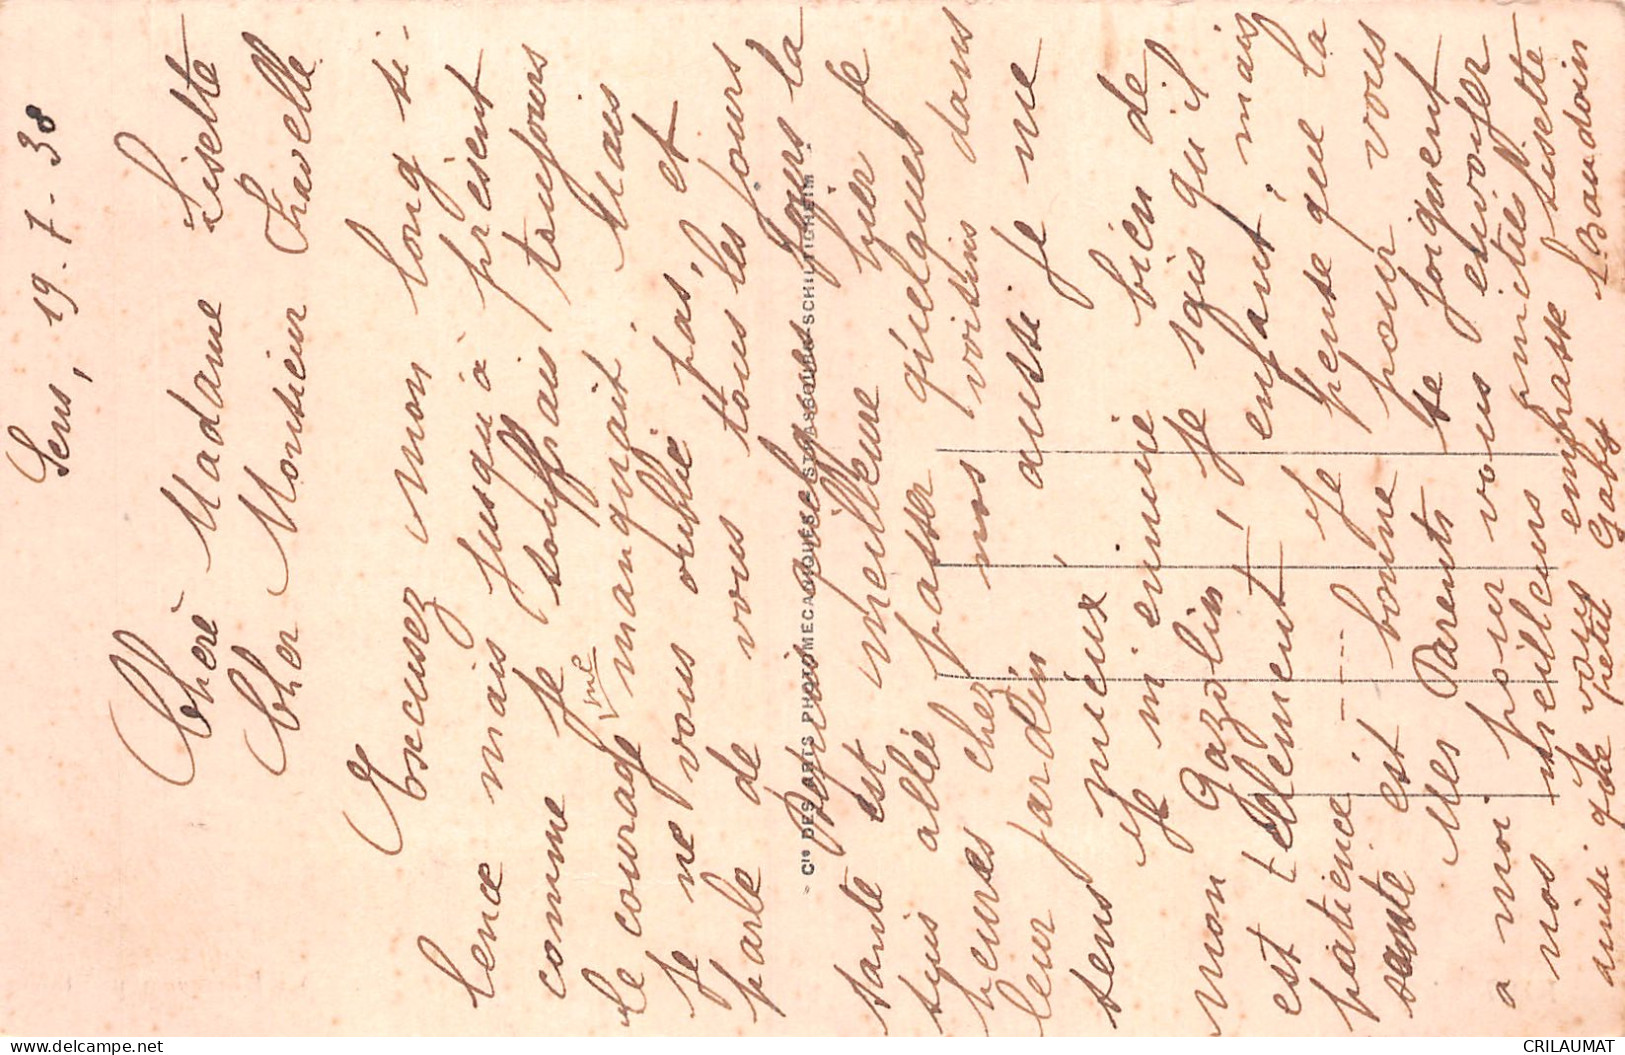 Sens, 19-7-38
Chère Madame Lisette
Cher Monsieur
Excusez mon long si-
lence mais jusqu'à présent
comme je souffrais toujours
le courage me manquait. Mais
je ne vous oublie pas, et
parle de vous tous les jours
Depuis quelques jours la
santé est meilleure hier je
suis allée passer quelques
heures chez nos voisins dans
leur jardin aussi je me
sens mieux
je m'ennuie bien de
mon Gazolin, je sais qu'il
est tellement enfant, mais
patience --- je pense que la
santé est bonne pour vous
Mes Parents se joignent
à moi pour vous envoyer
nos meilleurs amitiés
ainsi que vous embrasse Lisette
petit Gaby Baudoin
Cie DES ARTS PHOTOMECANIQUES - STRASBOURG-SCHILTIGHEIM
CRILAUMAT